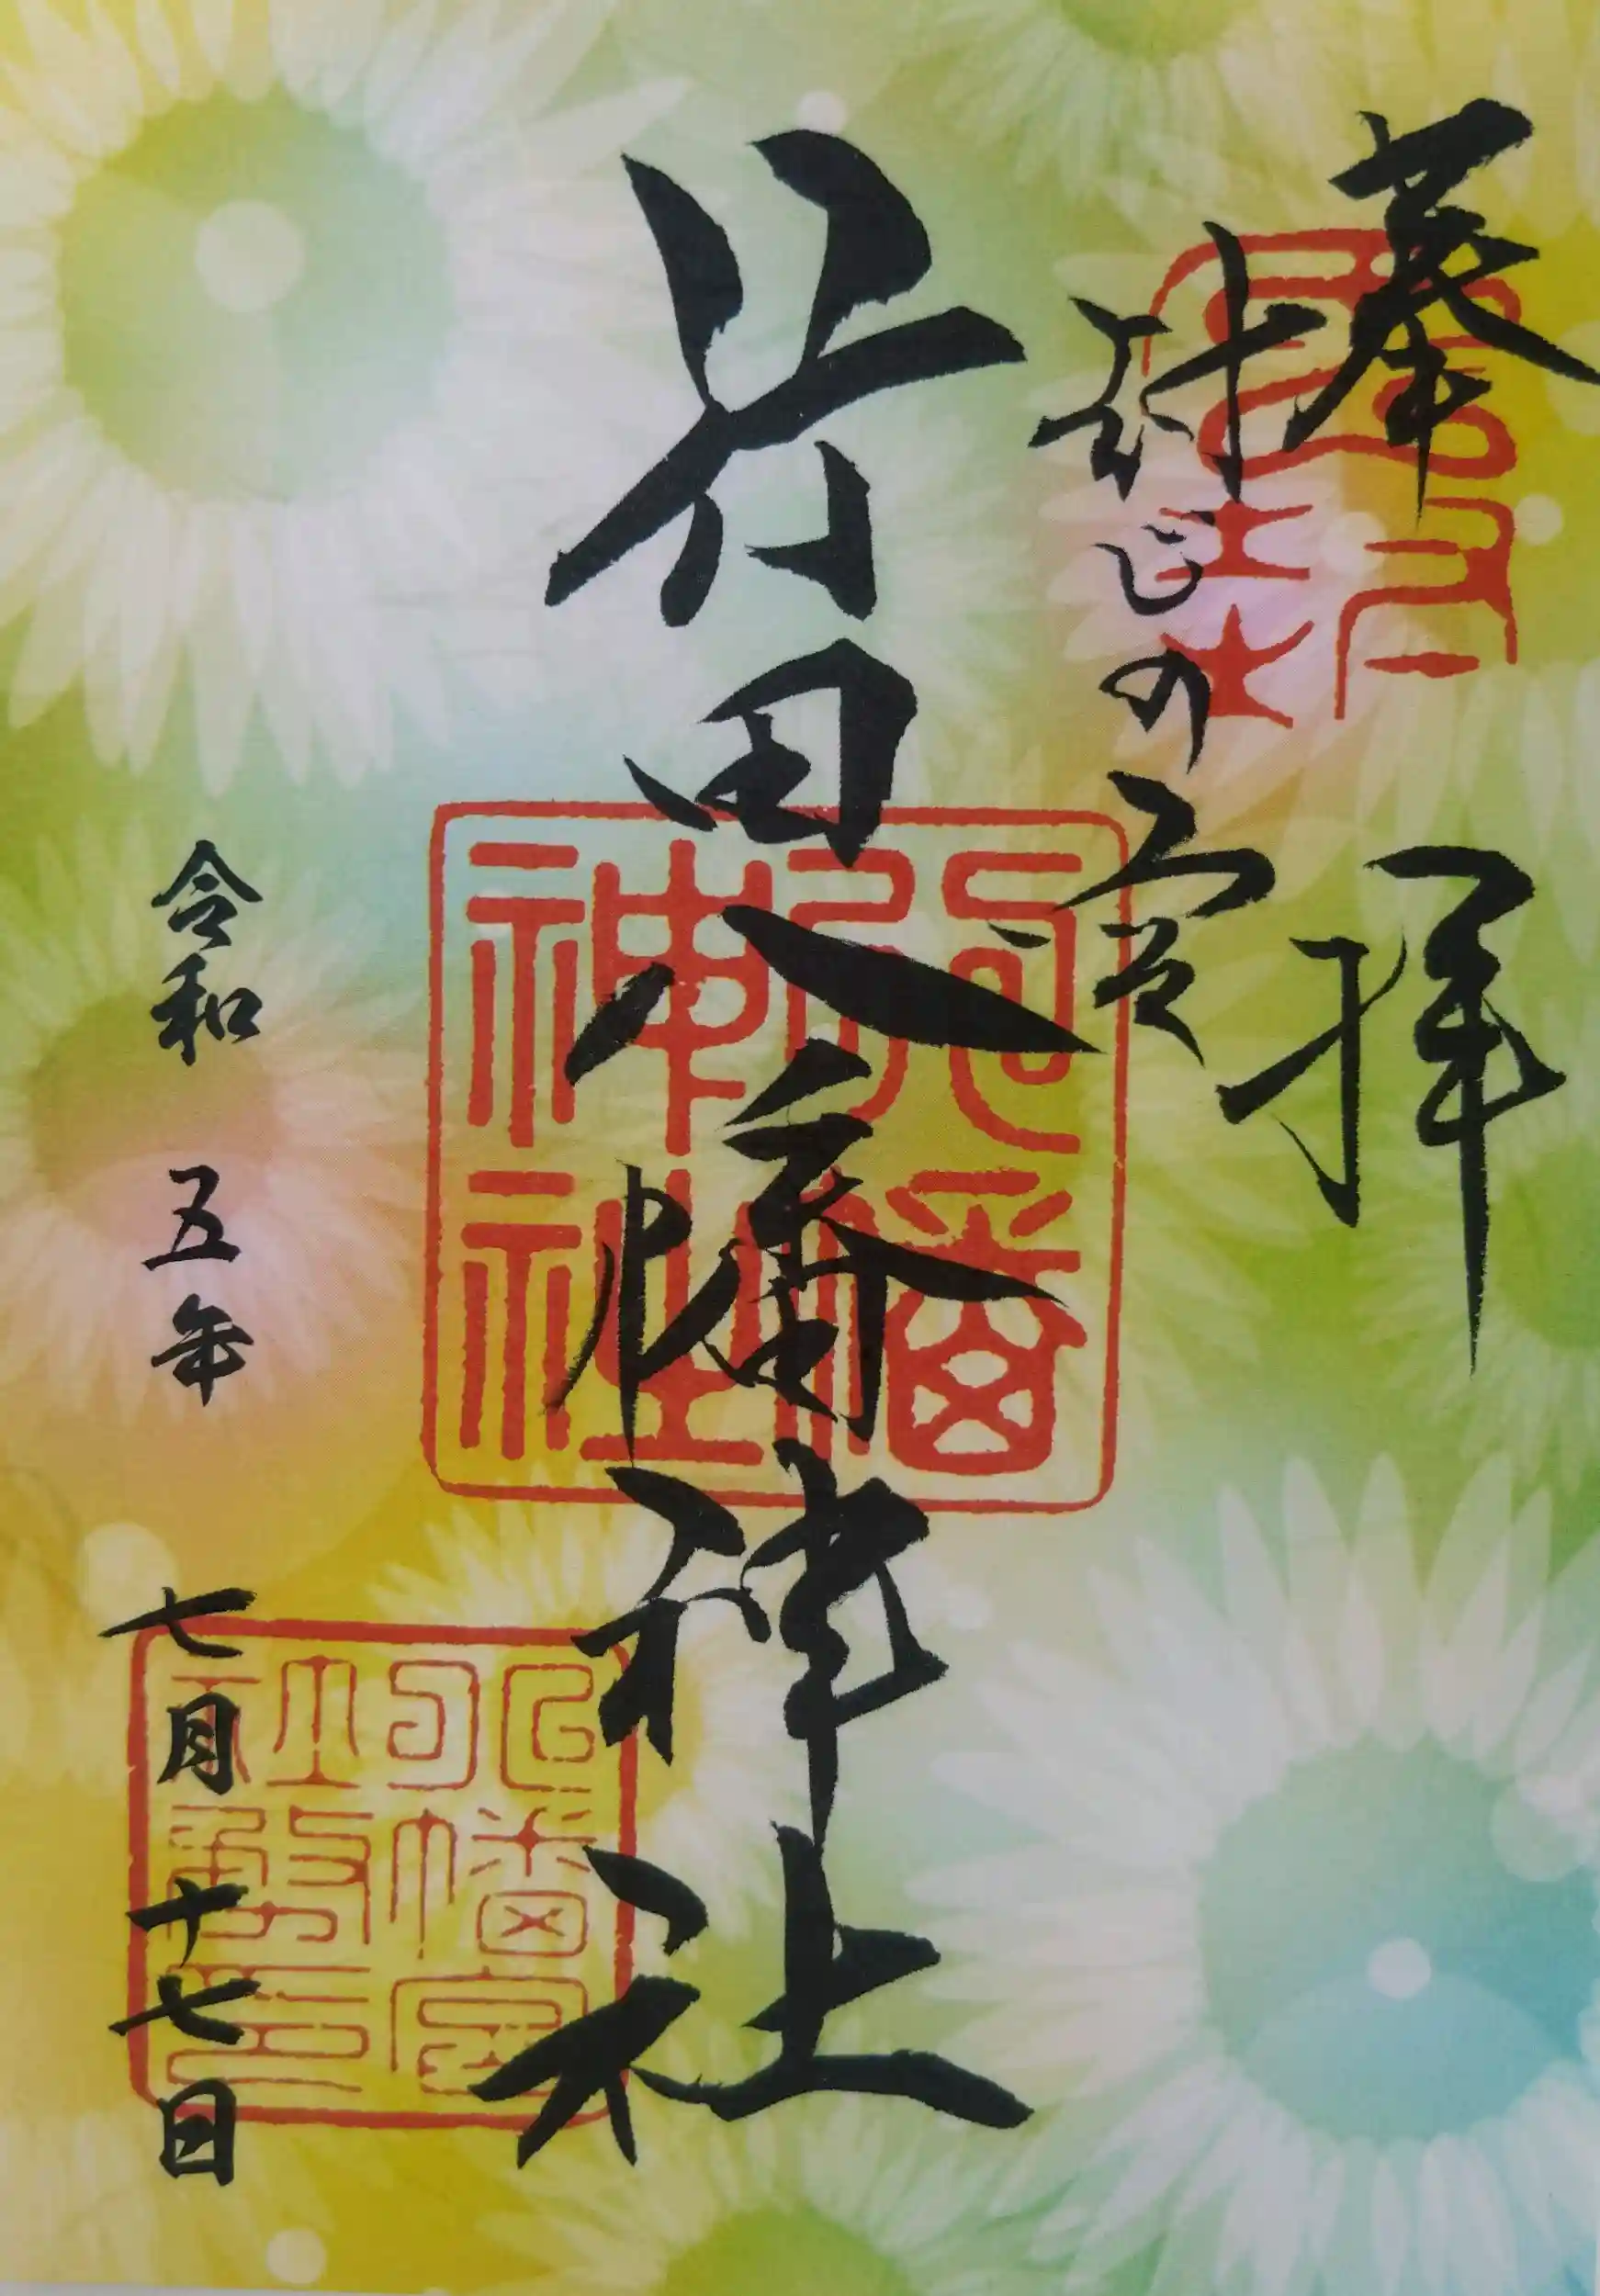 奉拝
封じの宮
行田八幡神社
八幡
神社
令和五年七月十七日
八幡宮
社務印